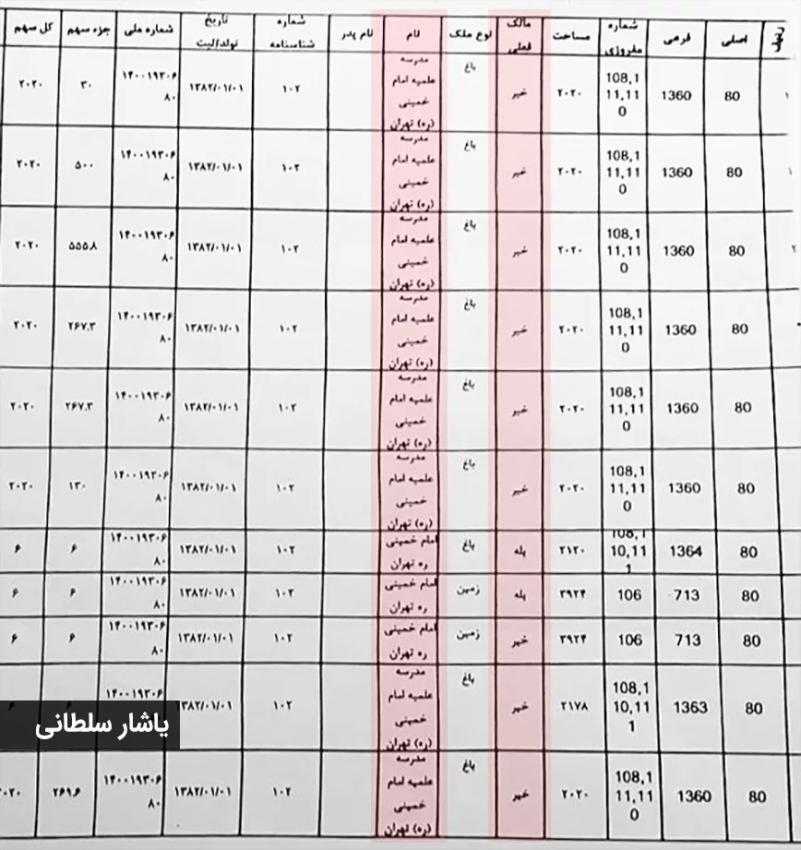 ردیف اصلی فرعی شماره مفروزی مساحت مالک فعلی نوع ملک نام نام پدر شماره شناسنامه تاریخ تولد/ثبت شماره ملی جزء سهم کل سهم
80 1360 108,111,110 ۲۰۲۰ خیر باغ مدرسه علمیه امام خمینی (ره) تهران ۱۰۲ ۱۳۸۲/۰۱/۰۱ ۱۴۰۰۱۹۳۰۶۸۰ ۳۰ ۲۰۲۰
80 1360 108,111,110 ۲۰۲۰ خیر باغ مدرسه علمیه امام خمینی (ره) تهران ۱۰۲ ۱۳۸۲/۰۱/۰۱ ۱۴۰۰۱۹۳۰۶۸۰ ۵۰۰ ۲۰۲۰
80 1360 108,111,110 ۲۰۲۰ خیر باغ مدرسه علمیه امام خمینی (ره) تهران ۱۰۲ ۱۳۸۲/۰۱/۰۱ ۱۴۰۰۱۹۳۰۶۸۰ ۵۵۵.۸ ۲۰۲۰
80 1360 108,111,110 ۲۰۲۰ خیر باغ مدرسه علمیه امام خمینی (ره) تهران ۱۰۲ ۱۳۸۲/۰۱/۰۱ ۱۴۰۰۱۹۳۰۶۸۰ ۲۶۷.۳ ۲۰۲۰
80 1360 108,111,110 ۲۰۲۰ خیر باغ مدرسه علمیه امام خمینی (ره) تهران ۱۰۲ ۱۳۸۲/۰۱/۰۱ ۱۴۰۰۱۹۳۰۶۸۰ ۲۶۷.۳ ۲۰۲۰
80 1360 108,111,110 ۲۰۲۰ خیر باغ مدرسه علمیه امام خمینی (ره) تهران ۱۰۲ ۱۳۸۲/۰۱/۰۱ ۱۴۰۰۱۹۳۰۶۸۰ ۱۳۰ ۲۰۲۰
80 1364 108,110,111 ۲۱۲۰ بله باغ امام خمینی ره تهران ۱۰۲ ۱۳۸۲/۰۱/۰۱ ۱۴۰۰۱۹۳۰۶۸۰ ۶ ۶
80 713 106 ۳۹۲۴ بله زمین امام خمینی ره تهران ۱۰۲ ۱۳۸۲/۰۱/۰۱ ۱۴۰۰۱۹۳۰۶۸۰ ۶ ۶
80 713 106 ۳۹۲۴ خیر زمین امام خمینی ره تهران ۱۰۲ ۱۳۸۲/۰۱/۰۱ ۱۴۰۰۱۹۳۰۶۸۰ ۶ ۶
80 1363 108,110,111 ۲۱۷۸ خیر باغ مدرسه علمیه امام خمینی (ره) تهران ۱۰۲ ۱۳۸۲/۰۱/۰۱ ۱۴۰۰۱۹۳۰۶
80 1360 108,111,110 ۲۰۲۰ خیر باغ مدرسه علمیه امام خمینی (ره) تهران ۱۰۲ ۱۳۸۲/۰۱/۰۱ ۱۴۰۰۱۹۳۰۶۸۰ ۲۶۹.۶ ۲۰۲۰
یاشار سلطانی